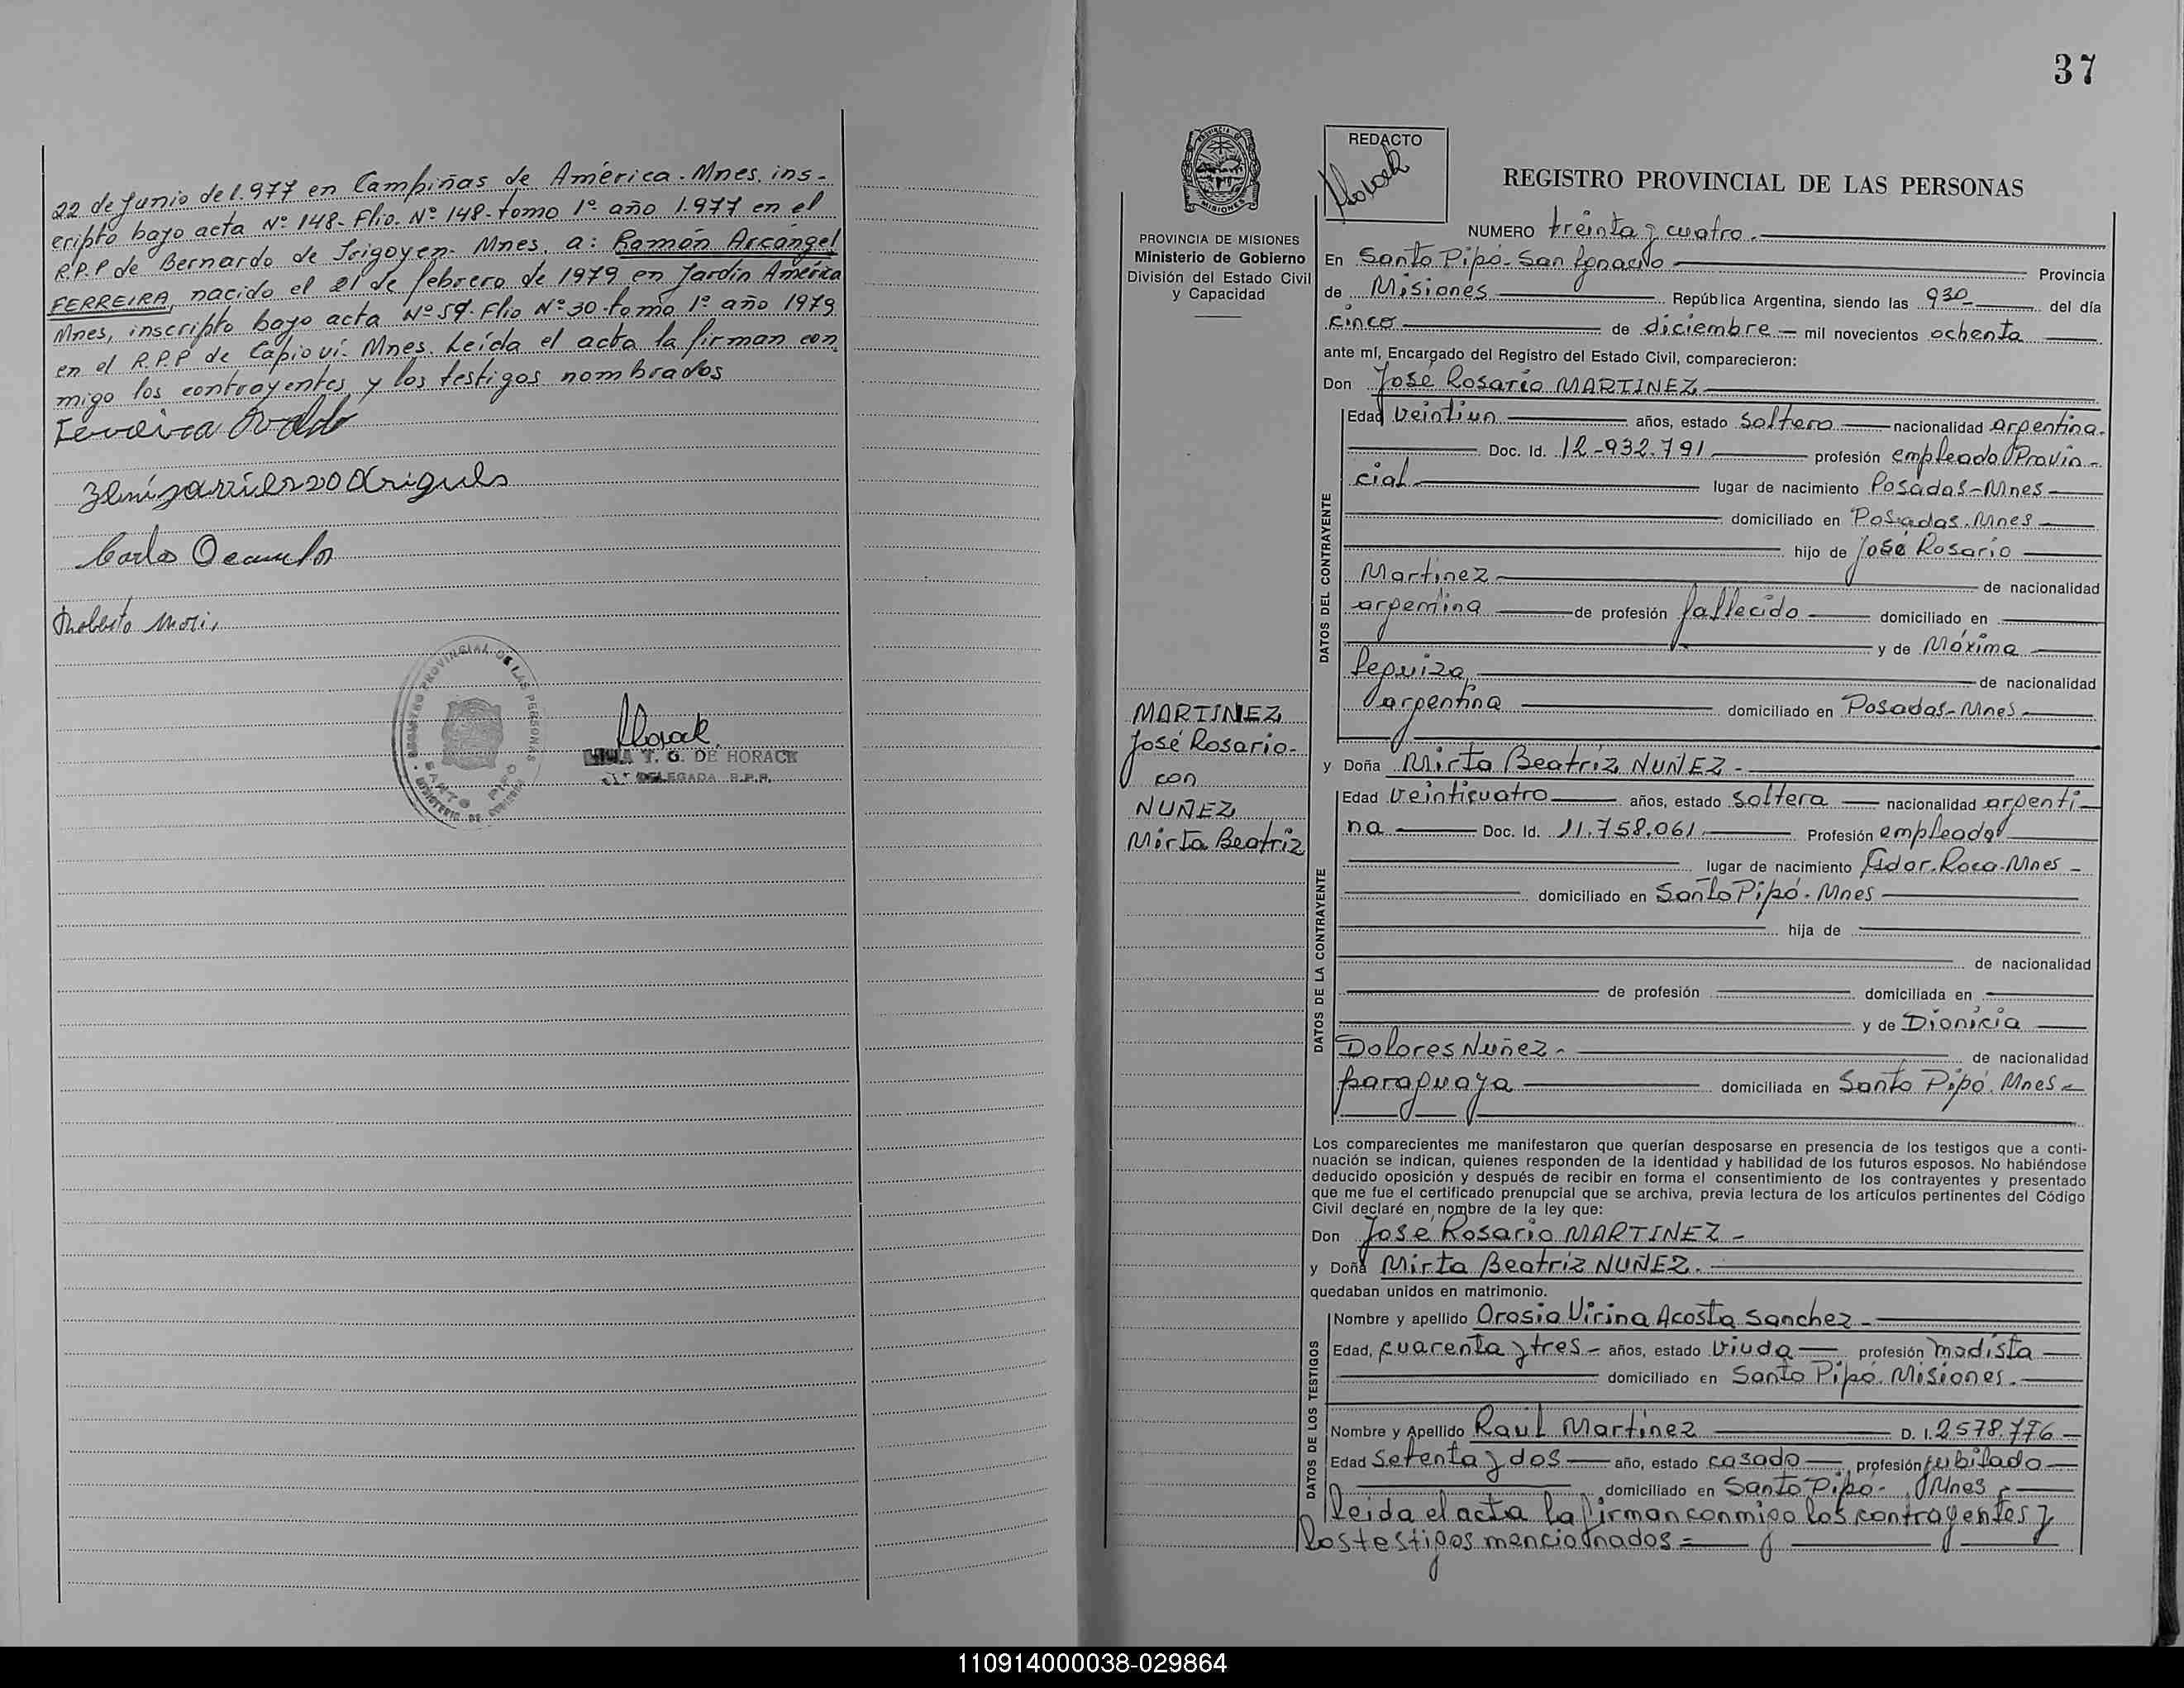 22 de Junio de 1.977 en Campiñas de América. Mnes. ins-
cripto bajo acta Nº 148- Flio. Nº 148- tomo 1º año 1.977 en el
R.P.P de Bernardo de Irigoyen- Mnes. a: Ramón Arcángel
FERREIRA, nacido el 21 de febrero de 1979 en Jardín América
Mnes, inscripto bajo acta Nº 59. Flio Nº 30 tomo 1º año 1979
en el R.P.P de Capioví. Mnes. Leída el acta la firman con
migo los contrayentes y los testigos nombrados
Carlos
Roberto
REGISTRO PROVINCIAL DE LAS PERSONAS
SANTO PIPO
Horack
T. G. DE HORACK
DELEGADA R.P.P.
37
PROVINCIA DE MISIONES
Ministerio de Gobierno
División del Estado Civil
y Capacidad
MARTINEZ
José Rosario-
con
NUÑEZ
Mirta Beatriz
REDACTO
Horack
REGISTRO PROVINCIAL DE LAS PERSONAS
NUMERO treinta y cuatro.-
En Santo Pipó- San Ignacio Provincia
de Misiones República Argentina, siendo las 930 del día
cinco de diciembre mil novecientos ochenta
ante mí, Encargado del Registro del Estado Civil, comparecieron:
Don José Rosario MARTINEZ
DATOS DEL CONTRAYENTE
Edad veintiun años, estado soltero nacionalidad argentina.
Doc. Id. 12-932.791 profesión empleado Provin-
cial lugar de nacimiento Posadas-Mnes
domiciliado en Posadas. Mnes
hijo de José Rosario
Martinez de nacionalidad
argentina de profesión fallecido domiciliado en
y de Máxima
Leguiza de nacionalidad
argentina domiciliado en Posadas-Mnes
y Doña Mirta Beatriz NUÑEZ-
DATOS DE LA CONTRAYENTE
Edad veinticuatro años, estado soltera nacionalidad argenti-
na Doc. Id. 11.758.061 Profesión empleada
lugar de nacimiento Gdor. Roca-Mnes
domiciliado en Santo Pipó. Mnes
hija de
de nacionalidad
de profesión domiciliada en
y de Dionicia
Dolores Nuñez- de nacionalidad
paraguaya domiciliada en Santo Pipó. Mnes
Los comparecientes me manifestaron que querían desposarse en presencia de los testigos que a conti-
nuación se indican, quienes responden de la identidad y habilidad de los futuros esposos. No habiéndose
deducido oposición y después de recibir en forma el consentimiento de los contrayentes y presentado
que me fue el certificado prenupcial que se archiva, previa lectura de los artículos pertinentes del Código
Civil declaré en nombre de la ley que:
Don José Rosario MARTINEZ-
y Doña Mirta Beatriz NUÑEZ.
quedaban unidos en matrimonio.
DATOS DE LOS TESTIGOS
Nombre y apellido Orosia Virina Acosta Sanchez
Edad, cuarenta y tres- años, estado viuda profesión modista
domiciliado en Santo Pipó. Misiones.
Nombre y Apellido Raúl Martinez D. I. 2578.776
Edad setenta y dos año, estado casado profesión jubilado
domiciliado en Santo Pipó- Mnes
Leida el acta la firman conmigo los contrayentes y
los testigos mencionados=
110914000038-029864